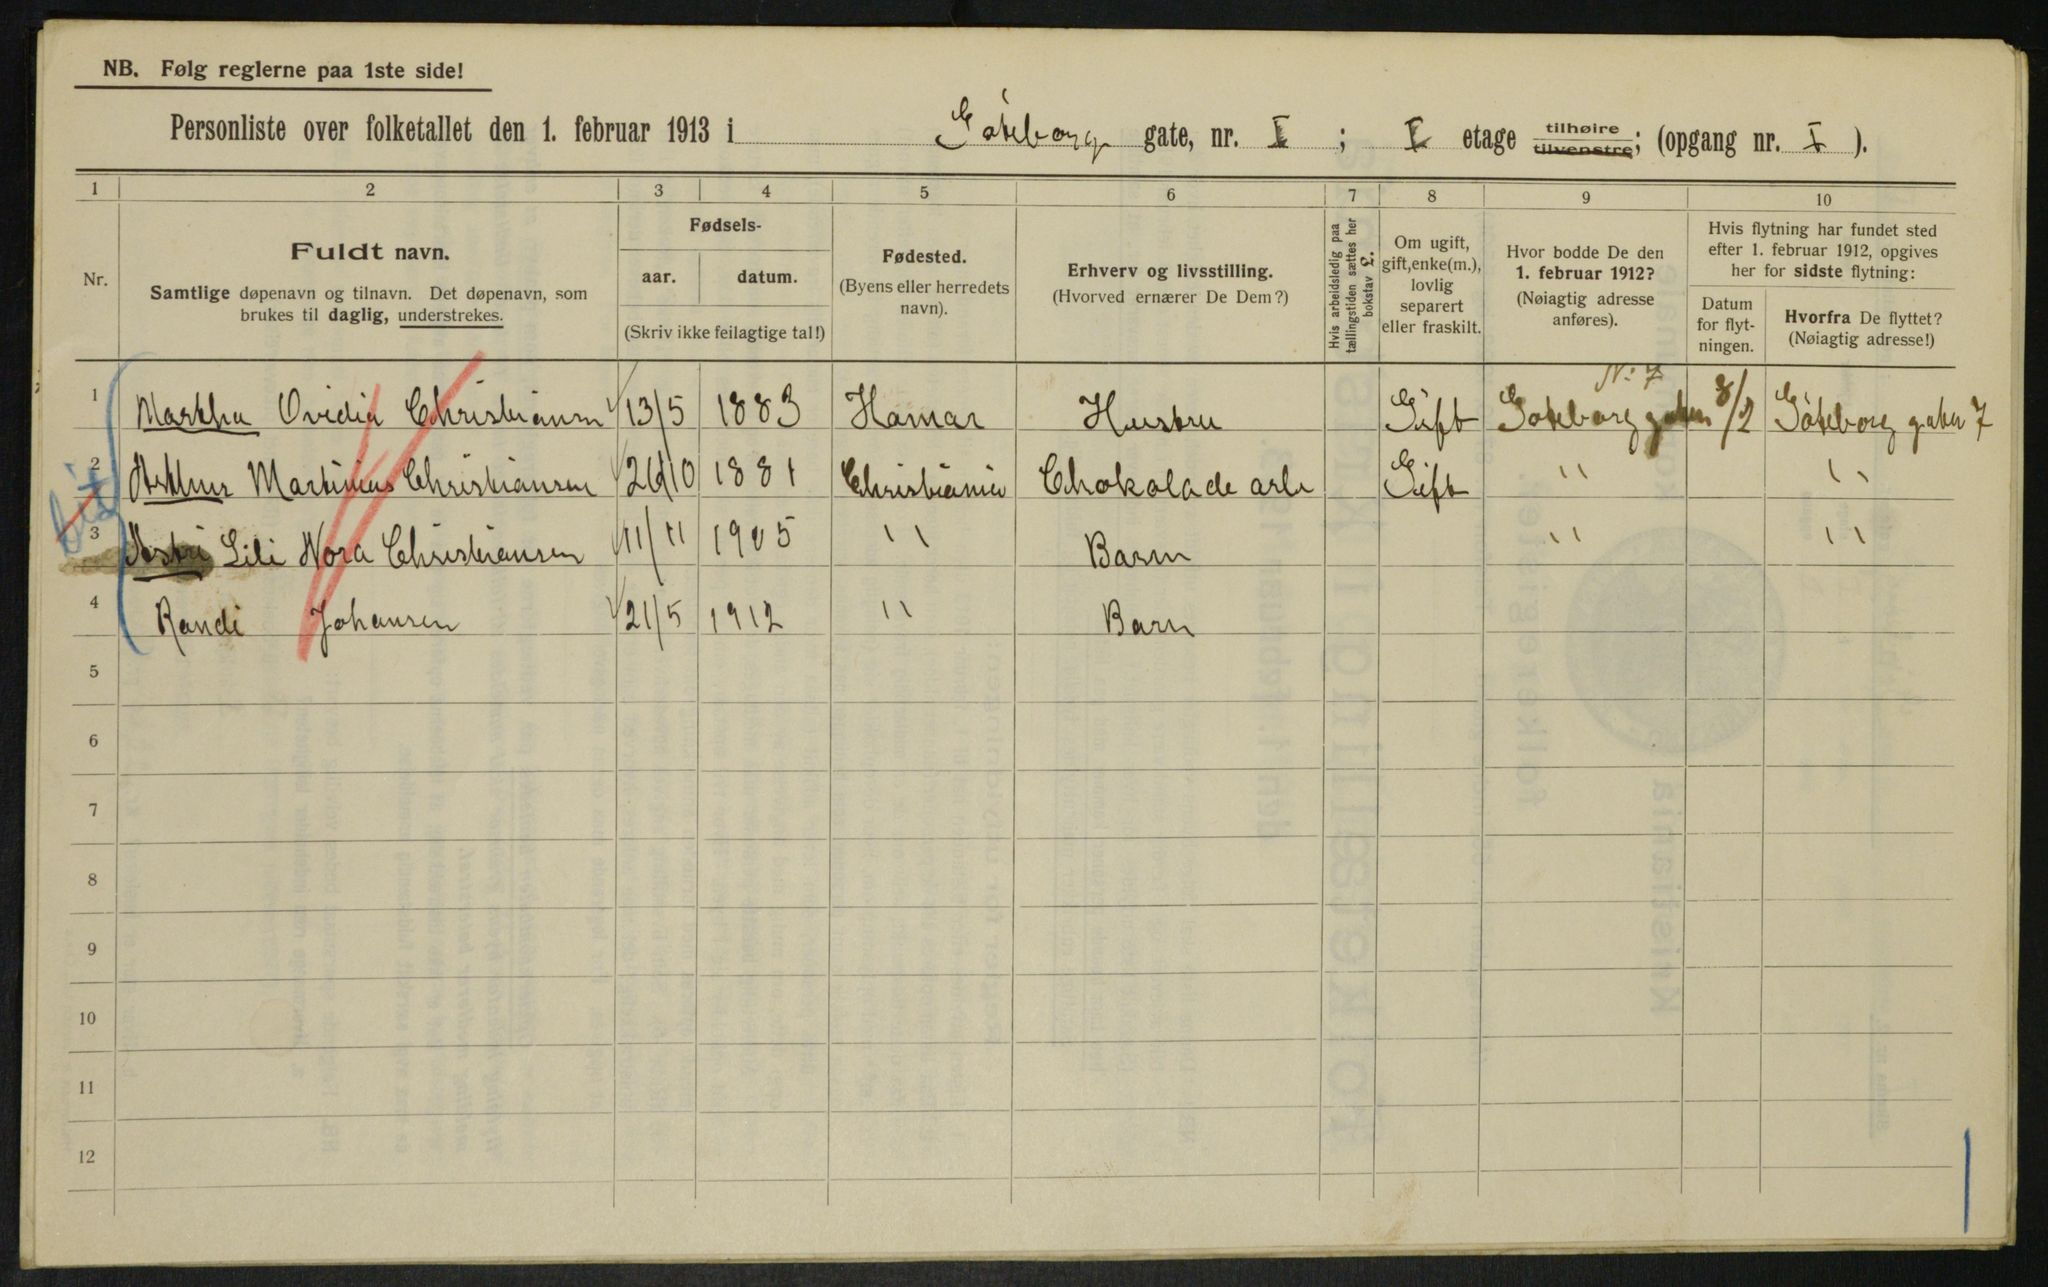 NB. Følg reglerne paa 1ste side!
Personliste over folketallet den 1. februar 1913 i Göteborg gate, nr. I ; I etage tilhøire tilvenstre; (opgang nr. I ).
1 2 3 4 5 6 7 8 9 10
Nr.
Fuldt navn.
Samtlige døpenavn og tilnavn. Det døpenavn, som
brukes til daglig, understrekes.
Fødsels-
aar. datum.
(Skriv ikke feilagtige tal!)
Fødested.
(Byens eller herredets
navn).
Erhverv og livsstilling.
(Hvorved ernærer De Dem?)
Hvis arbeidsledig paa
tællingstiden sættes her
bokstav L.
Om ugift,
gift, enke(m.),
lovlig
separert
eller fraskilt.
Hvor bodde De den
1. februar 1912?
(Nøiagtig adresse
anføres).
Hvis flytning har fundet sted
efter 1. februar 1912, opgives
her for sidste flytning:
Datum
for flyt-
ningen.
Hvorfra De flyttet?
(Nøiagtig adresse!)
N: 7
1 Martha Ovidia Christiansen 13/5 1883 Hamar Hustru Gift Göteborg gaten 8/2 Göteborg gaten 7
2 Arthur Martinius Christiansen 26/10 1881 Christiania Chokolade arb Gift " "
3 Astri Lili Nora Christiansen 11/11 1905 " Barn " "
4 Randi Johansen 21/5 1912 " Barn
5
6
7
8
9
10
11
12